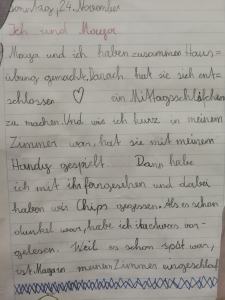 Sonntag, 24. November
Ich und Maya
Maya und ich haben zusammen Haus=
übung gemacht. Danach hat sie sich ent=
schlossen ein Mittagsschläfchen
zu machen. Und wie ich kurz in meinem
Zimmer war, hat sie mit meinem
Handy gespielt. Dann habe
ich mit ihr ferngesehen und dabei
haben wir Chips gegessen. Als es schon
dunkel war, habe ich etwas vor-
gelesen. Weil es schon spät war,
ist Maya in meinem Zimmer eingeschlaf